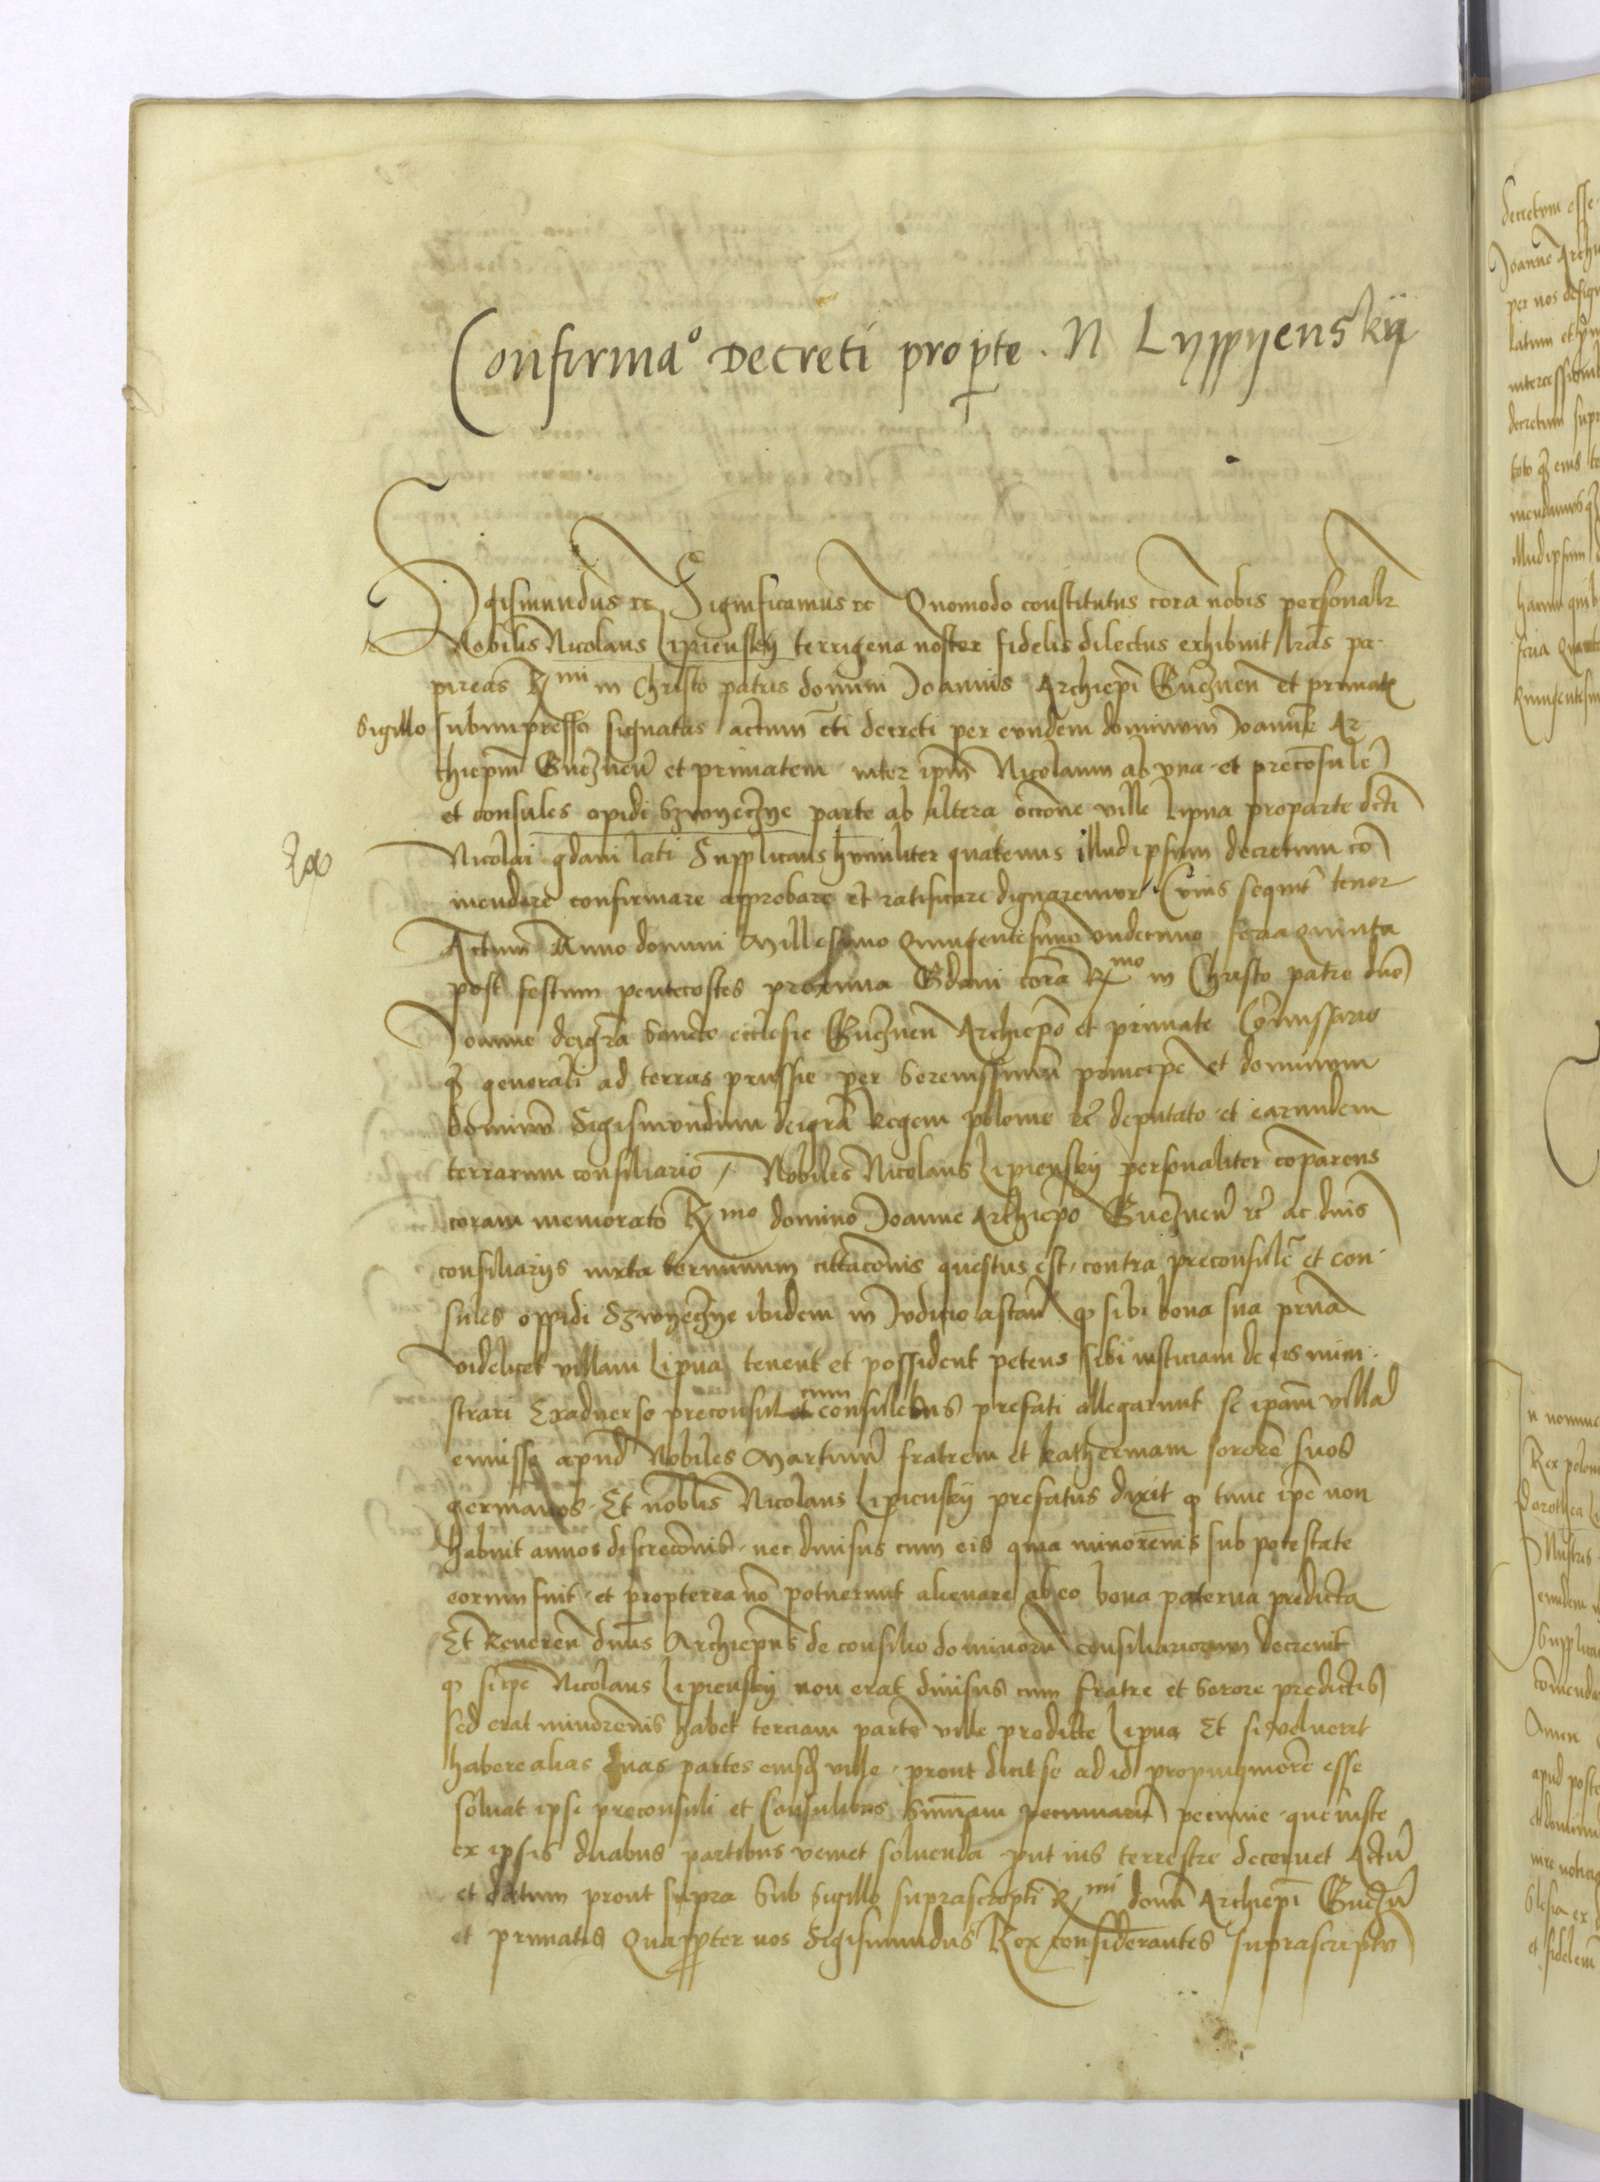 Confirmaº Decreti pro pte. N Lyppyensky
Sigismundus rc Significamus rc Quomodo constitutus corā nobis personalr
Nobilis Nicolaus Lipiensky terrigena noster fidelis dilectus exhibuit lrās pa-
pireas Rmi in Christo patris domini Joannis Archiepi Gneznen et primatis
Sigillo subimpresso signatas actum cti decreti per eundem dominum Joannē Ar-
chiepm̄ Gneznen̄ et primatem inter ipm̄ Nicolaum ab una et preconsulē
et consules opidi Szwyeczye parte ab altera occōne ville Lipna pro parte dcti
Nicolai gdani lati Supplicans humiliter quatenus illud ipsum decretum cō
mendare confirmare approbare et ratificare dignaremur Cuius sequitr tenor
Actum Anno domini Millesimo Quingentesimo undecimo feria quinta
post festum pentecostes proxima Gdani corā Rmo in Christo patre dnō
Joanne dei grā Sancte ecclesie Gneznen Archiepō et primate Comissario
qz generali ad terras prussie per Serenissimum principē et dominum
dominū Sigismundum dei grā Regem polonie rc deputato et earundem
terrarum consiliario / Nobiles Nicolaus Lipiensky personaliter cōparens
coram memorato Rmo domino Joanne Archiepō Gneznen rc ac dnis
consiliarijs iuxta terminum citacōnis questus est, contra preconsulē et con-
sules oppidi Szwyeczye ibidem in Judicio astan̄ qo sibi bona sua prna
videlicet villam Lipna tenent et possident petens sibi iusticiam de eis mini-
strari Ex adverso preconsul et cum consulebus prefati allegarunt se ipam villā
emisse apud Nobiles Martinū fratrem et katherinam sororē suos
germanos. Et nobilis Nicolaus Lipiensky prefatus dixit qo tunc ipe non
habuit annos discrecōnis, nec divisus cum eis quia minorenis sub potestate
eorum fuit, et propterea nō potuerunt alienare ab eo bona paterna predicta
Et Reveren dnus Archiepus de consilio dominorū consiliariorum decrevit
qo si ipe Nicolaus Lipiensky non erat divisus cum fratre et sorore predictis
sed erat minorenis habet terciam partē ville predicte Lipna Et si voluerit
habere alias duas partes eiusdē ville, prout dicit se ad id propinquiorē esse
solvat ipsi preconsuli et Consulibus Summam pecuniarū pecunie que iuste
ex ipsis duabus partibus veniet solvenda put ius terrestre decernet Actū
et datum prout supra Sub Sigillo suprascripti Rmi domi Archiepi Gnezn
et primatis Quapropter nos Sigismundus Rex considerantes suprascriptū